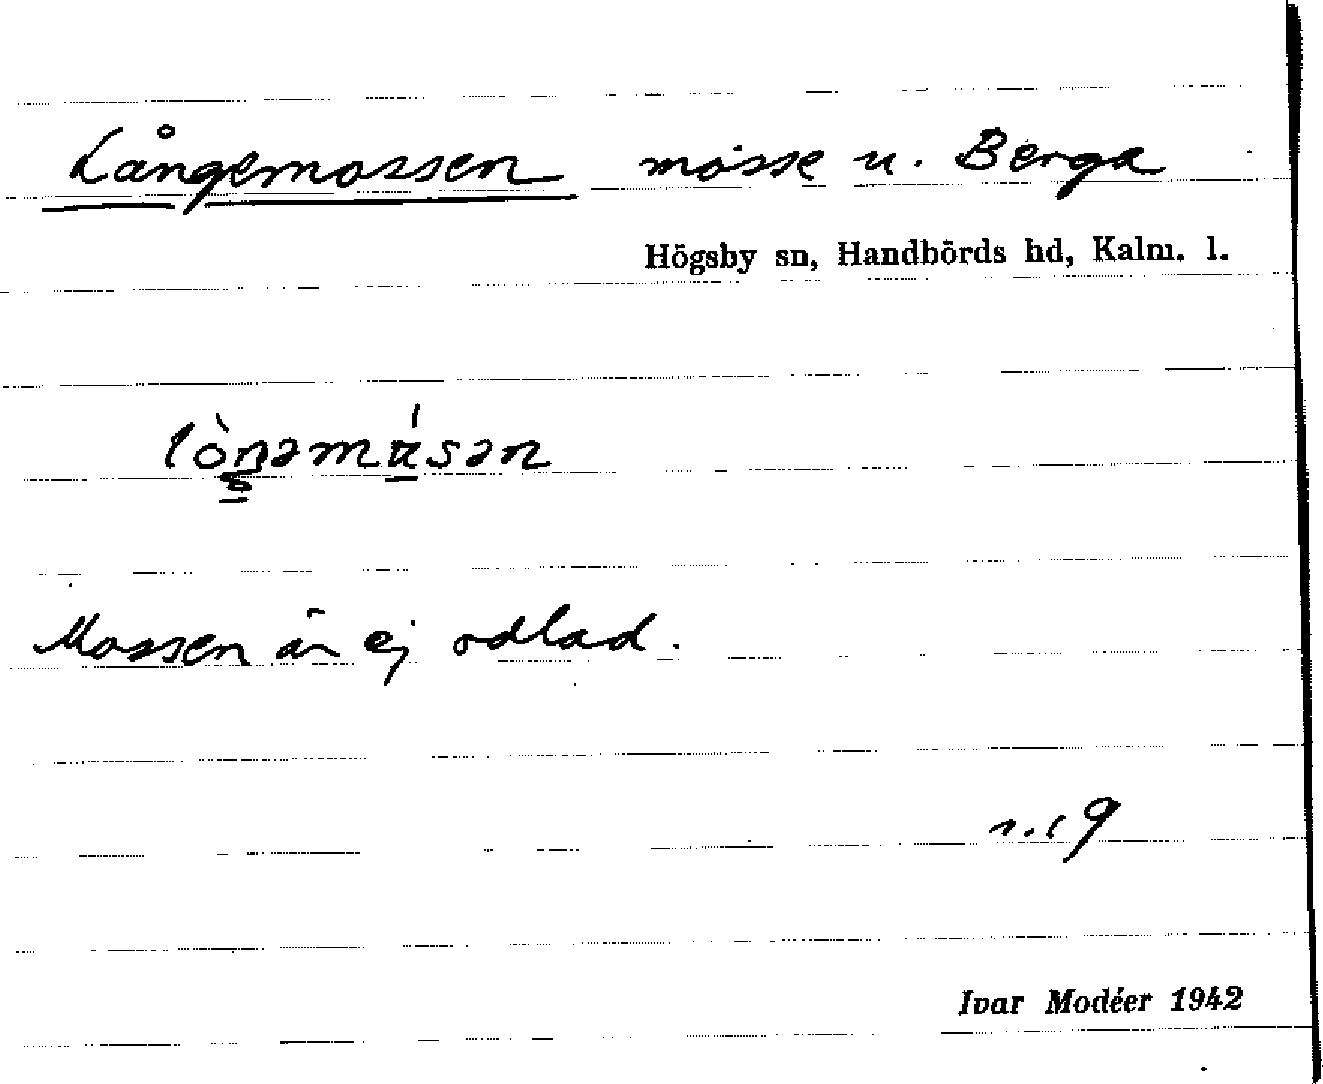 Långemossen mosse u. Berga
Högsby sn, Handbörds hd, Kalm. l.
Mossen är ej odlad.
r. 19
Ivar Modéer 1942